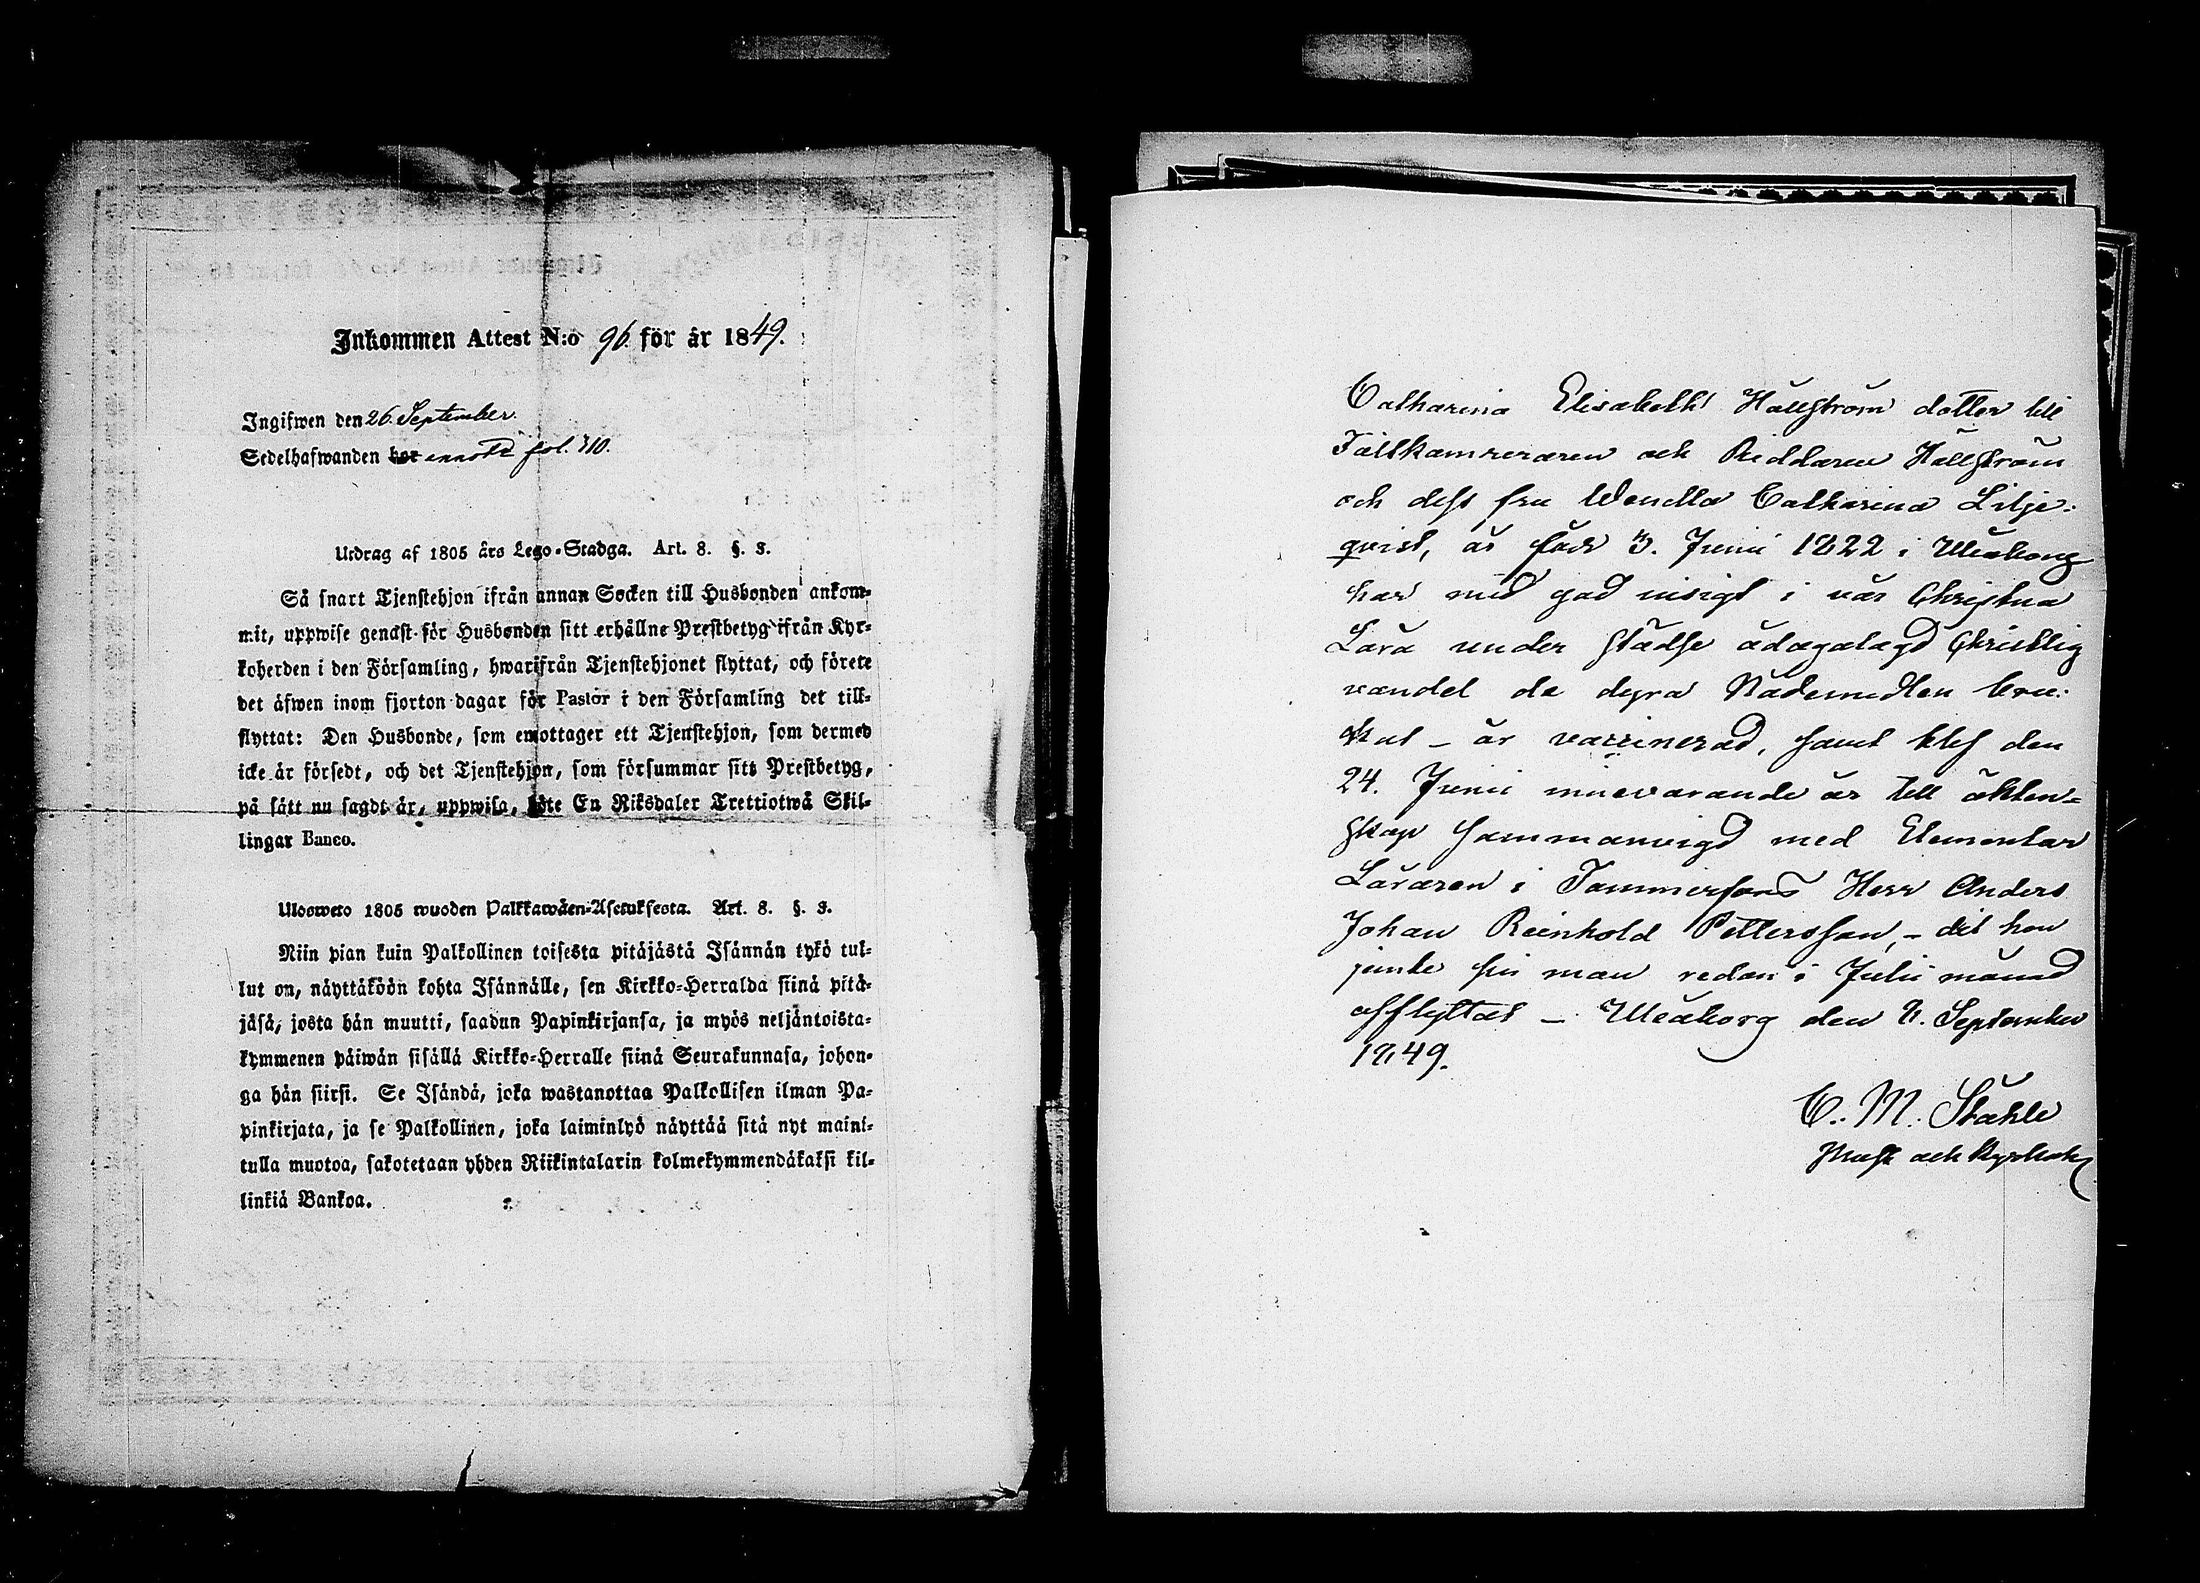 Inkommen Attest N:o 96. för år 1849.
Ingifwen den 26. September.
Sedelhafwanden har fol. 710.
Utdrag af 1805 års Lego-Stadga. Art. 8. §. 3.
Så snart Tjenstehjon ifrån annan Socken till Husbonden ankom-
mit, uppwise genast för Husbonden sitt erhållne Prestbetyg ifrån Kyr-
koherden i den Församling, hwarifrån Tjenstehjonet flyttat, och förete
det äfwen inom fjorton dagar för Pastor i den Församling det till-
flyttat: Den Husbonde, som emottager ett Tjenstehjon, som dermed
icke är försedt, och det Tjenstehjon, som försummar sitt Prestbetyg,
på sätt nu sagdt är, uppwisa, böte En Riksdaler Trettiotwå Skil-
lingar Banco.
Ulosweto 1805 wuoden Palkkawäen-Asetuksesta. Art. 8. §. 3.
Niin pian kuin Palkollinen toisesta pitäjästä Isännän tykö tul-
lut on, näyttäköön kohta Isännälle, sen Kirkko-Herralda siinä pitä-
jäsä, josta hän muutti, saadun Papinkirjansa, ja myös neljäntoista-
kymmenen päiwän sisällä Kirkko-Herralle siinä Seurakunnasa, johon-
ga hän siirsi. Se Isändä, joka wastanottaa Palkollisen ilman Pa-
pinkirjata, ja se Palkollinen, joka laiminlyö näyttää sitä nyt maini-
tulla muotoa, sakotetaan yhden Riikintalarin kolmekymmendäkaksi kil-
linkiä Bankoa.
Catharina Elisabeth Hällström dotter till
Fältkamreraren och Riddaren Hällström
och dess fru Wendla Catharina Lilje-
qvist, är född 3. Junii 1822 i Uleåborg
har med god insigt i vår Christna
Lära under städse ådagalagd Christlig
vandel de dyra Nådemedlen bru-
kat – är vaccinerad, samt blef den
24. Junii innevarande år till äkten-
skap sammanvigd med Elementar
Läraren i Tammerfors Herr Anders
Johan Reinhold Pettersson, – dit hon
jemte sin man redan i Julii månad
afflyttat – Uleåborg den 8. September
1849.
C. M. Ståhle